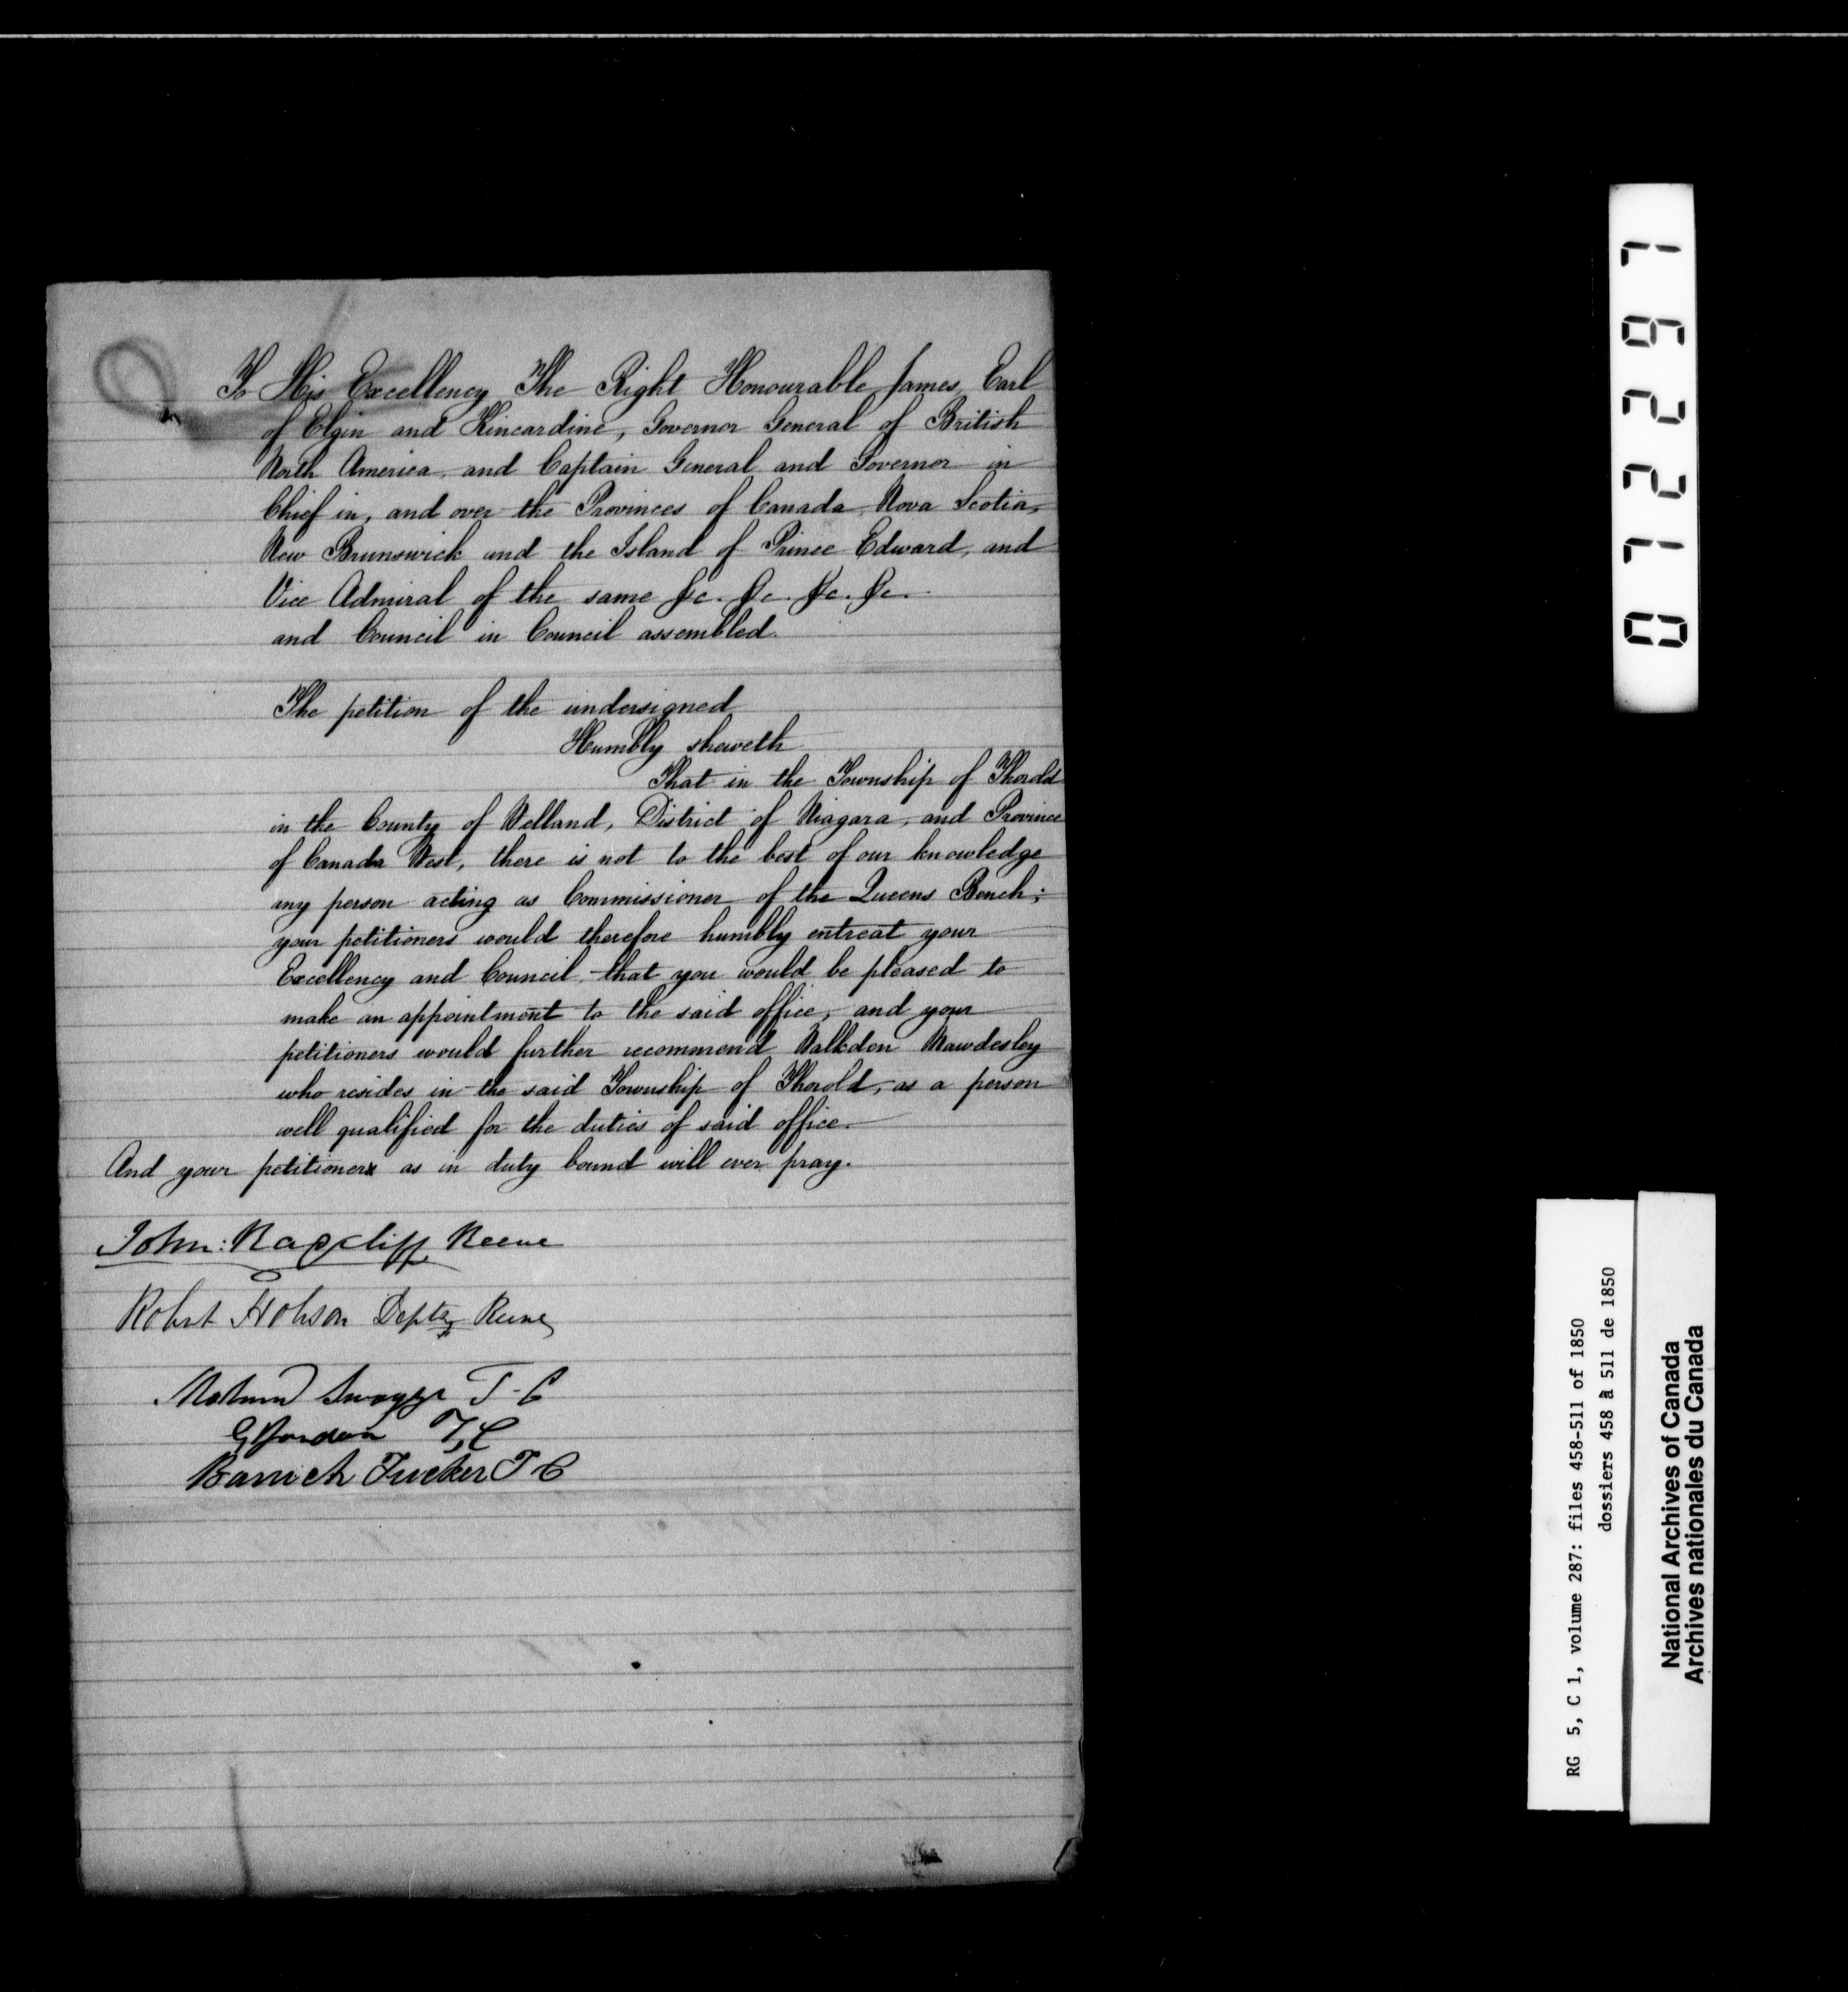 To His Excellency The Right Honourable James, Earl
of Elgin and Kincardine, Governor General of British
North America and Captain General and Governor in
Chief in, and over the Provinces of Canada, Nova Scotia,
New Brunswick and the Island of Prince Edward, and
Vice Admiral of the same &c. &c. &c. &c.
and Council in Council assembled.
The petition of the undersigned
Humbly sheweth
That in the Township of Thorold
in the County of Welland, District of Niagara, and Province
of Canada West, there is not to the best of our knowledge
any person acting as Commissioner of the Queens Bench;
your petitioners would therefore humbly entreat your
Excellency and Council that you would be pleased to
make an appointment to the said office, and your
petitioners would further recommend Walkden Mawdesley
who resides in the said Township of Thorold, as a person
well qualified for the duties of said office.
And your petitioners as in duty bound will ever pray.
John: Reeve
Robert Hobson Depty Reeve
T-C
T,C
Baruch Tucker T C
072297
RG 5, C 1, volume 287: files 458-511 of 1850
dossiers 458 à 511 de 1850
National Archives of Canada
Archives nationales du Canada